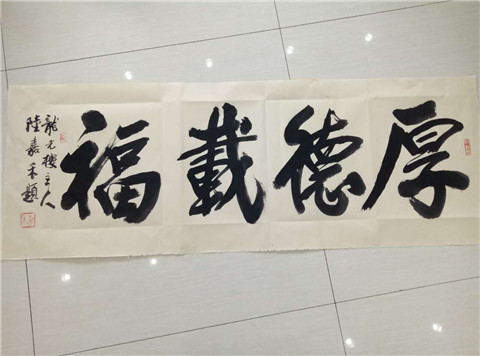 厚德載福
龍光樓主人
陸嘉禾題